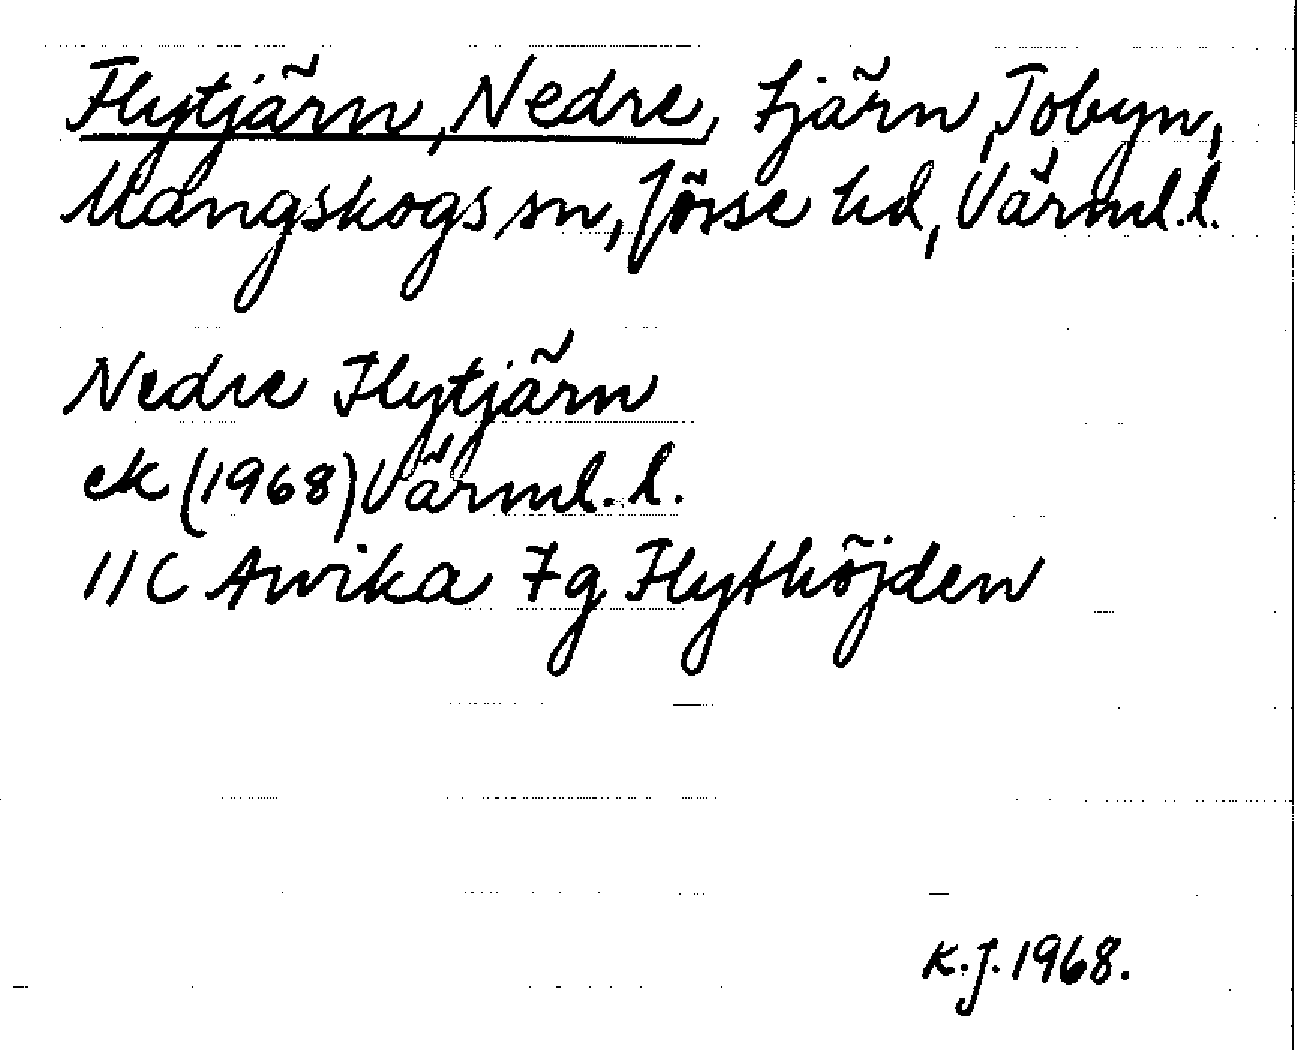 Flytjärn, Nedre, tjärn, Tobyn,
Mangskogs sn, Jösse hd, Värml. l.
Nedre Flytjärn
ek (1968) Värml. l.
11C Arvika 7g Flythöjden
K.J. 1968.